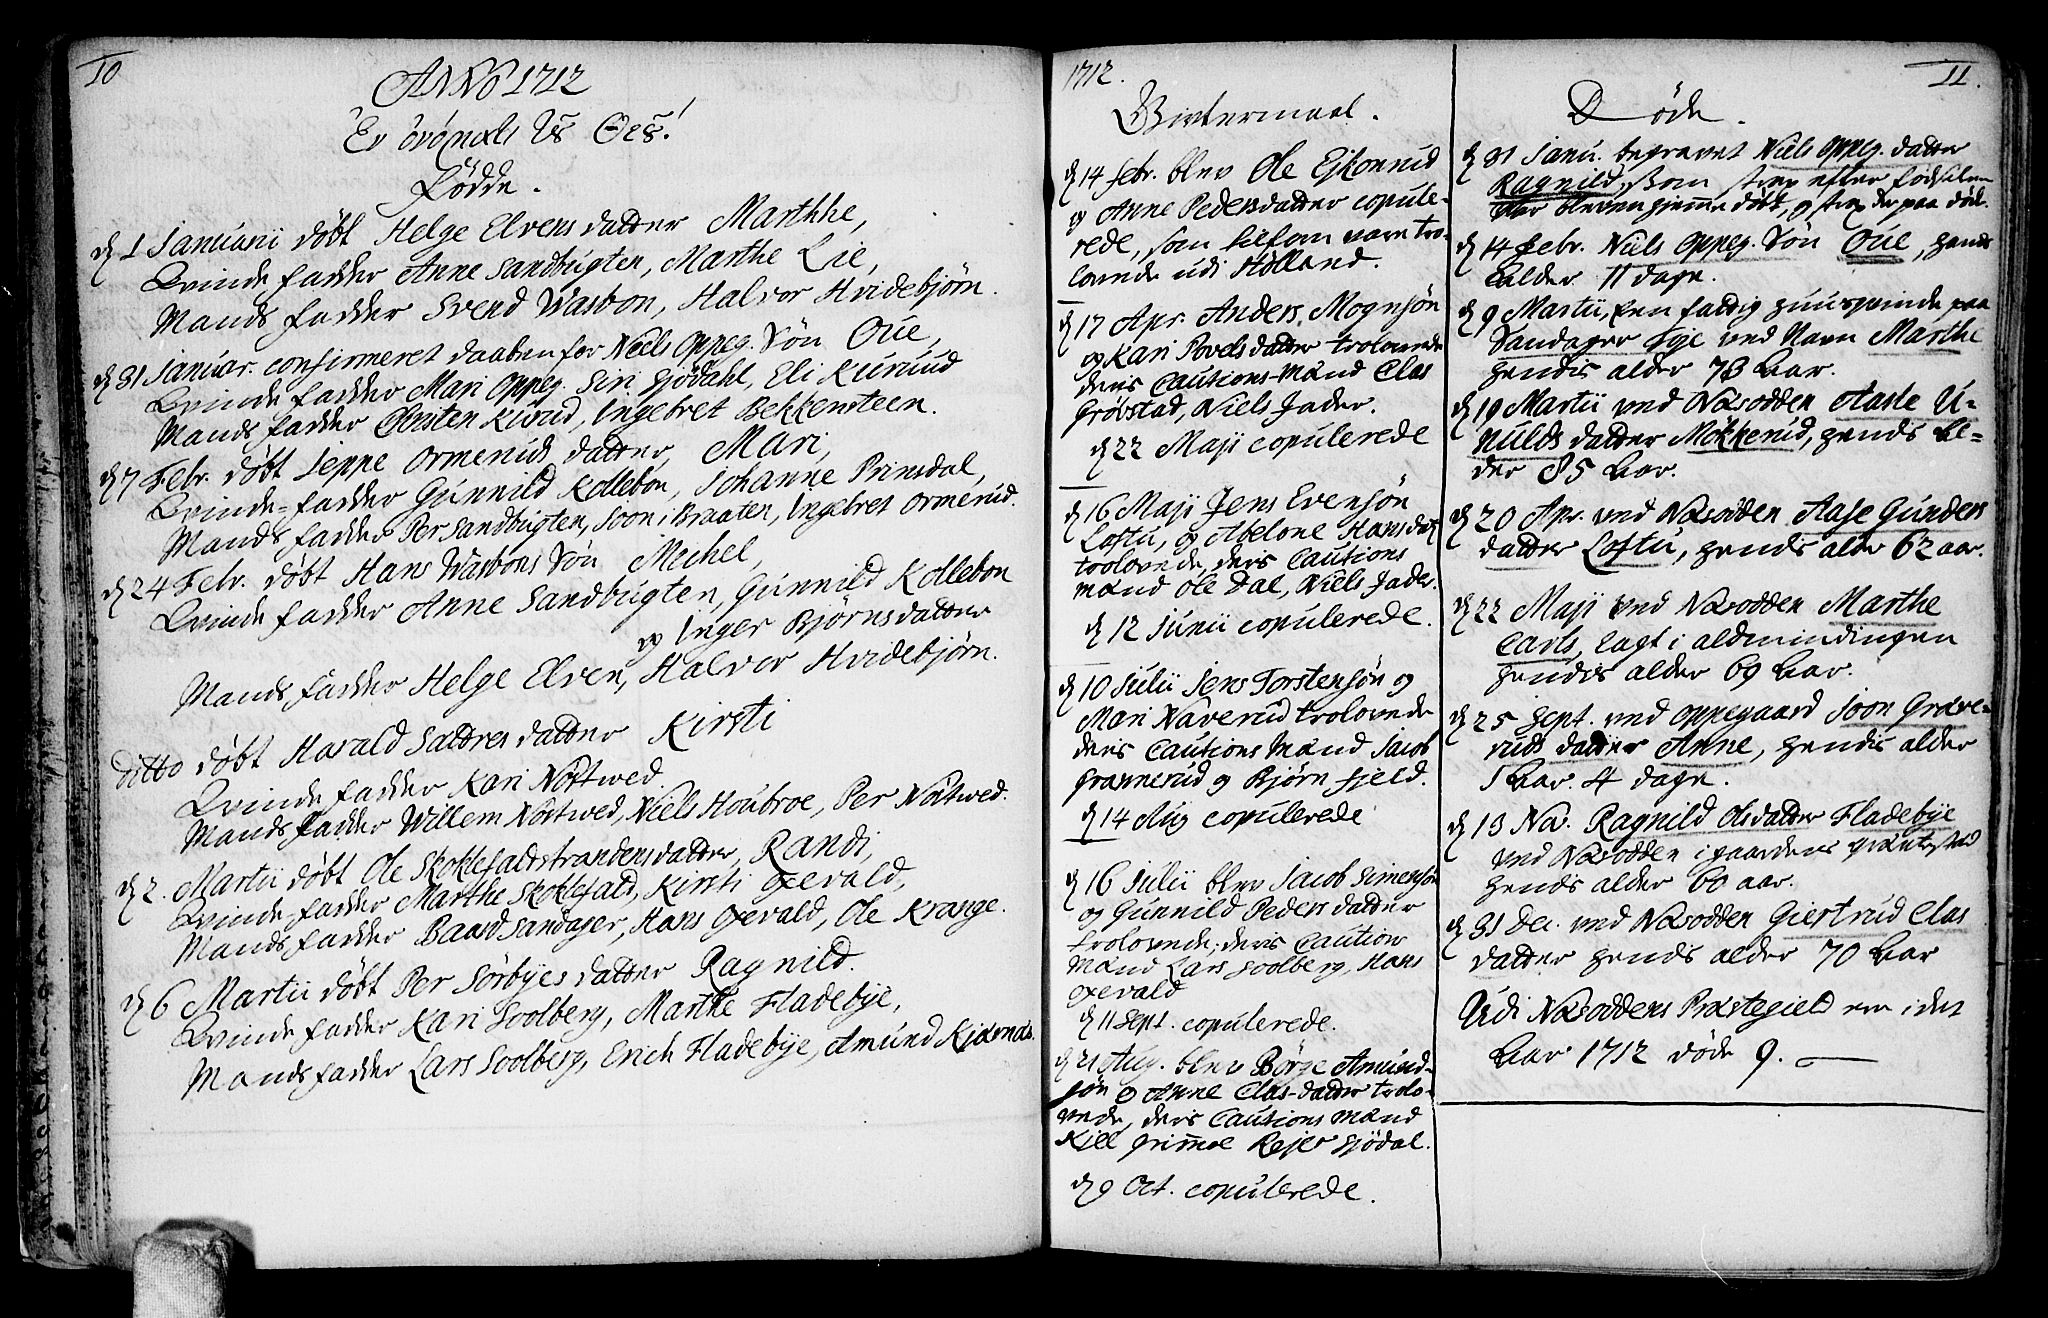 10
ANNO 1712
Fødde.
d 1 Januarii døbt Helge Elvens datter Marthhe,
Qvinde fadder Anne Sandbugten, Marthe Lie,
Mands fadder Svend Wasbon, Halvor Hvidebjørn.
d 31 Januar. confirmeret daaben for Niels Oppeg. Søn Oue,
Qvinde fadder Mari Oppeg. Siri Sjödahl, Eli Kurud
Mands fadder Christen Kurud, Ingebret Bekkensteen.
d 7 Febr. døbt Jeppe Ormeruds datter, Mari,
Qvinde-fadder Gunnild Kollebon, Johanne Prinsdal,
Mands fadder Per Sandbugten, Joon i Braaten, Ingebret Ormerud.
d 24 Febr. døbt Hans Wasbons Søn Michel,
Qvinde fadder Anne Sandbugten, Gunnild Kollebon
og Inger Bjørnsdatter
Mands fadder Helge Elven, Halvor Hvidebjørn.
Ditto døbt Harald Sættres datter Kirsti
Qvinde fadder Kari Nøstwed
Mands fadder Willem Nøstwed, Niels Houbroe, Per Nøstwed.
d 2. Martii døbt Ole Skoklefaldstrandens datter, Randi,
Qvinde-fadder Marthe Skoklefald, Kirsti Oxevald,
Mands fadder Baard Sandager, Hans Oxevald, Ole Krange.
d 6 Martii døbt Per Sørbyes datter Ragnild.
Qvinde fadder Kari Toolberg, Marthe Fladebye,
Mands fadder Lars Toolberg, Erich Fladebye, Amund Kjærnæs.
1712.
d 14 febr. blev Ole Ejkonrud
og Anne Pedersdatter copule-
rede, som tilforn vare tro-
lovede udi Holland.
d 17 Apr. Anders Mognsøn
og Kari Povelsdatter trolovede
deris Cautions-Mænd Clas
Grøvstad, Niels Jader.
d 22 Maji copulerede
d 16 Maji Jens Evensøn
Loftu, og Abelone Hansdat
trolovede, deris Cautions
mænd Ole Dal, Niels Jader.
d 12 Junii copulerede.
d 10 Julii Jens Torstensøn og
Mari Näverud trolovede
deris Cautions Mænd Jacob
grannerud og Bjørn fjeld.
d 14 Aug copulerede
d 16 Julii blev Jacob Simensøn
og Gunnild Peders datter
trolovede; deris Caution
Mænd Lars Toolberg, Hans
Oxevald
d 11 Sept. copulerede.
d 21 Aug. blev Børge Amund-
søn og Anne Clas-datter trolo-
vede, deris Cautions mænd
Kield grimmes Rejer Sjödal.
d 9 Oct. copulerede.
11.
Døde.
d 31 Janu. begravet Niels Oppeg. datter
Ragnild, som strax efter fødselen
blev hjemme døbt, og strax der paa døde.
d 14 Febr. Niels Oppeg. Søn Oue, hands
alder 11 dage.
d 9 Martii, Een fattig huusqvinde paa
Sandager Eye ved Navn Marthe
hendis alder 73 Aar.
d 19 Martii ved Næsodden Aaste U-
nulds datter Mökkerud, hends al-
der 85 Aar.
d 20 Apr. ved Næsodden Aase Gunders
datter Loftu, hends alder 62 aar.
d 22 Maji ved Næsodden Marthe
Carls, lagt i aldmindingen
hendis alder 69 Aar.
d 25 Sept. ved Oppegaard Joon Græve-
ruds datter Anne, hendis alder
1 Aar. 4 dage.
d 13 No. Ragnild Olsdatter Fladebye
ved Næsodden i gaardens grávested
hends alder 60 aar.
d 31 Dec. ved Næsodden Giertrud Clas
datter hends alder 70 Aar
Udi Næsoddens Præstegield ere i det
Aar 1712 døde 9.